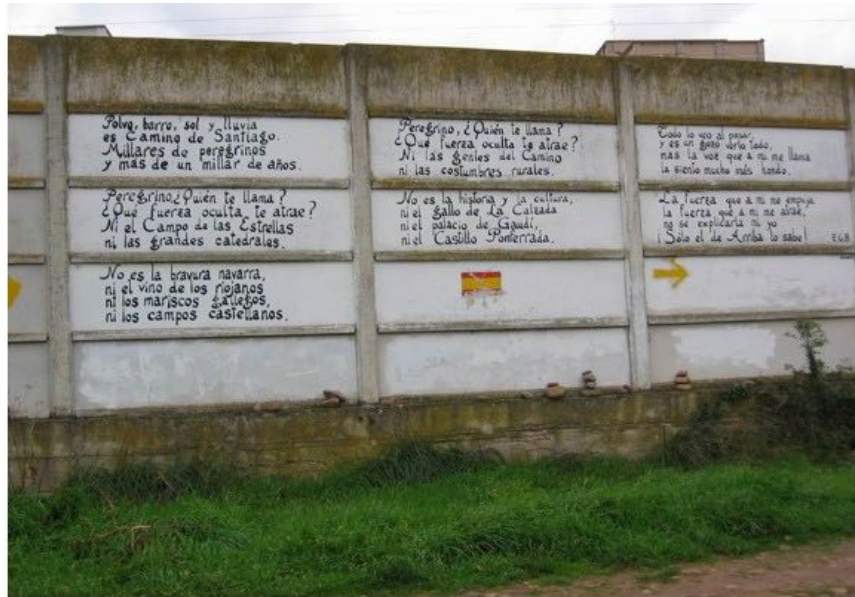 Polvo, barro, sol y lluvia
es Camino de Santiago.
Millares de peregrinos
y más de un millar de años.
Peregrino, ¿Quién te llama?
¿Qué fuerza oculta te atrae?
Ni el Campo de las Estrellas
ni las grandes catedrales.
No es la bravura navarra,
ni el vino de los riojanos
ni los mariscos gallegos,
ni los campos castellanos.
Peregrino, ¿Quién te llama?
¿Qué fuerza oculta te atrae?
Ni las gentes del Camino
ni las costumbres rurales.
No es la historia y la cultura,
ni el gallo de La Calzada
ni el palacio de Gaudí,
ni el Castillo Ponferrada.
Todo lo veo al pasar,
y es un gozo verlo todo,
mas la voz que a mi me llama
la siento mucho más hondo.
La fuerza que a mi me empuja
la fuerza que a mi me atrae,
no sé explicarla ni yo
¡Sólo el de Arriba lo sabe! E.G.B.